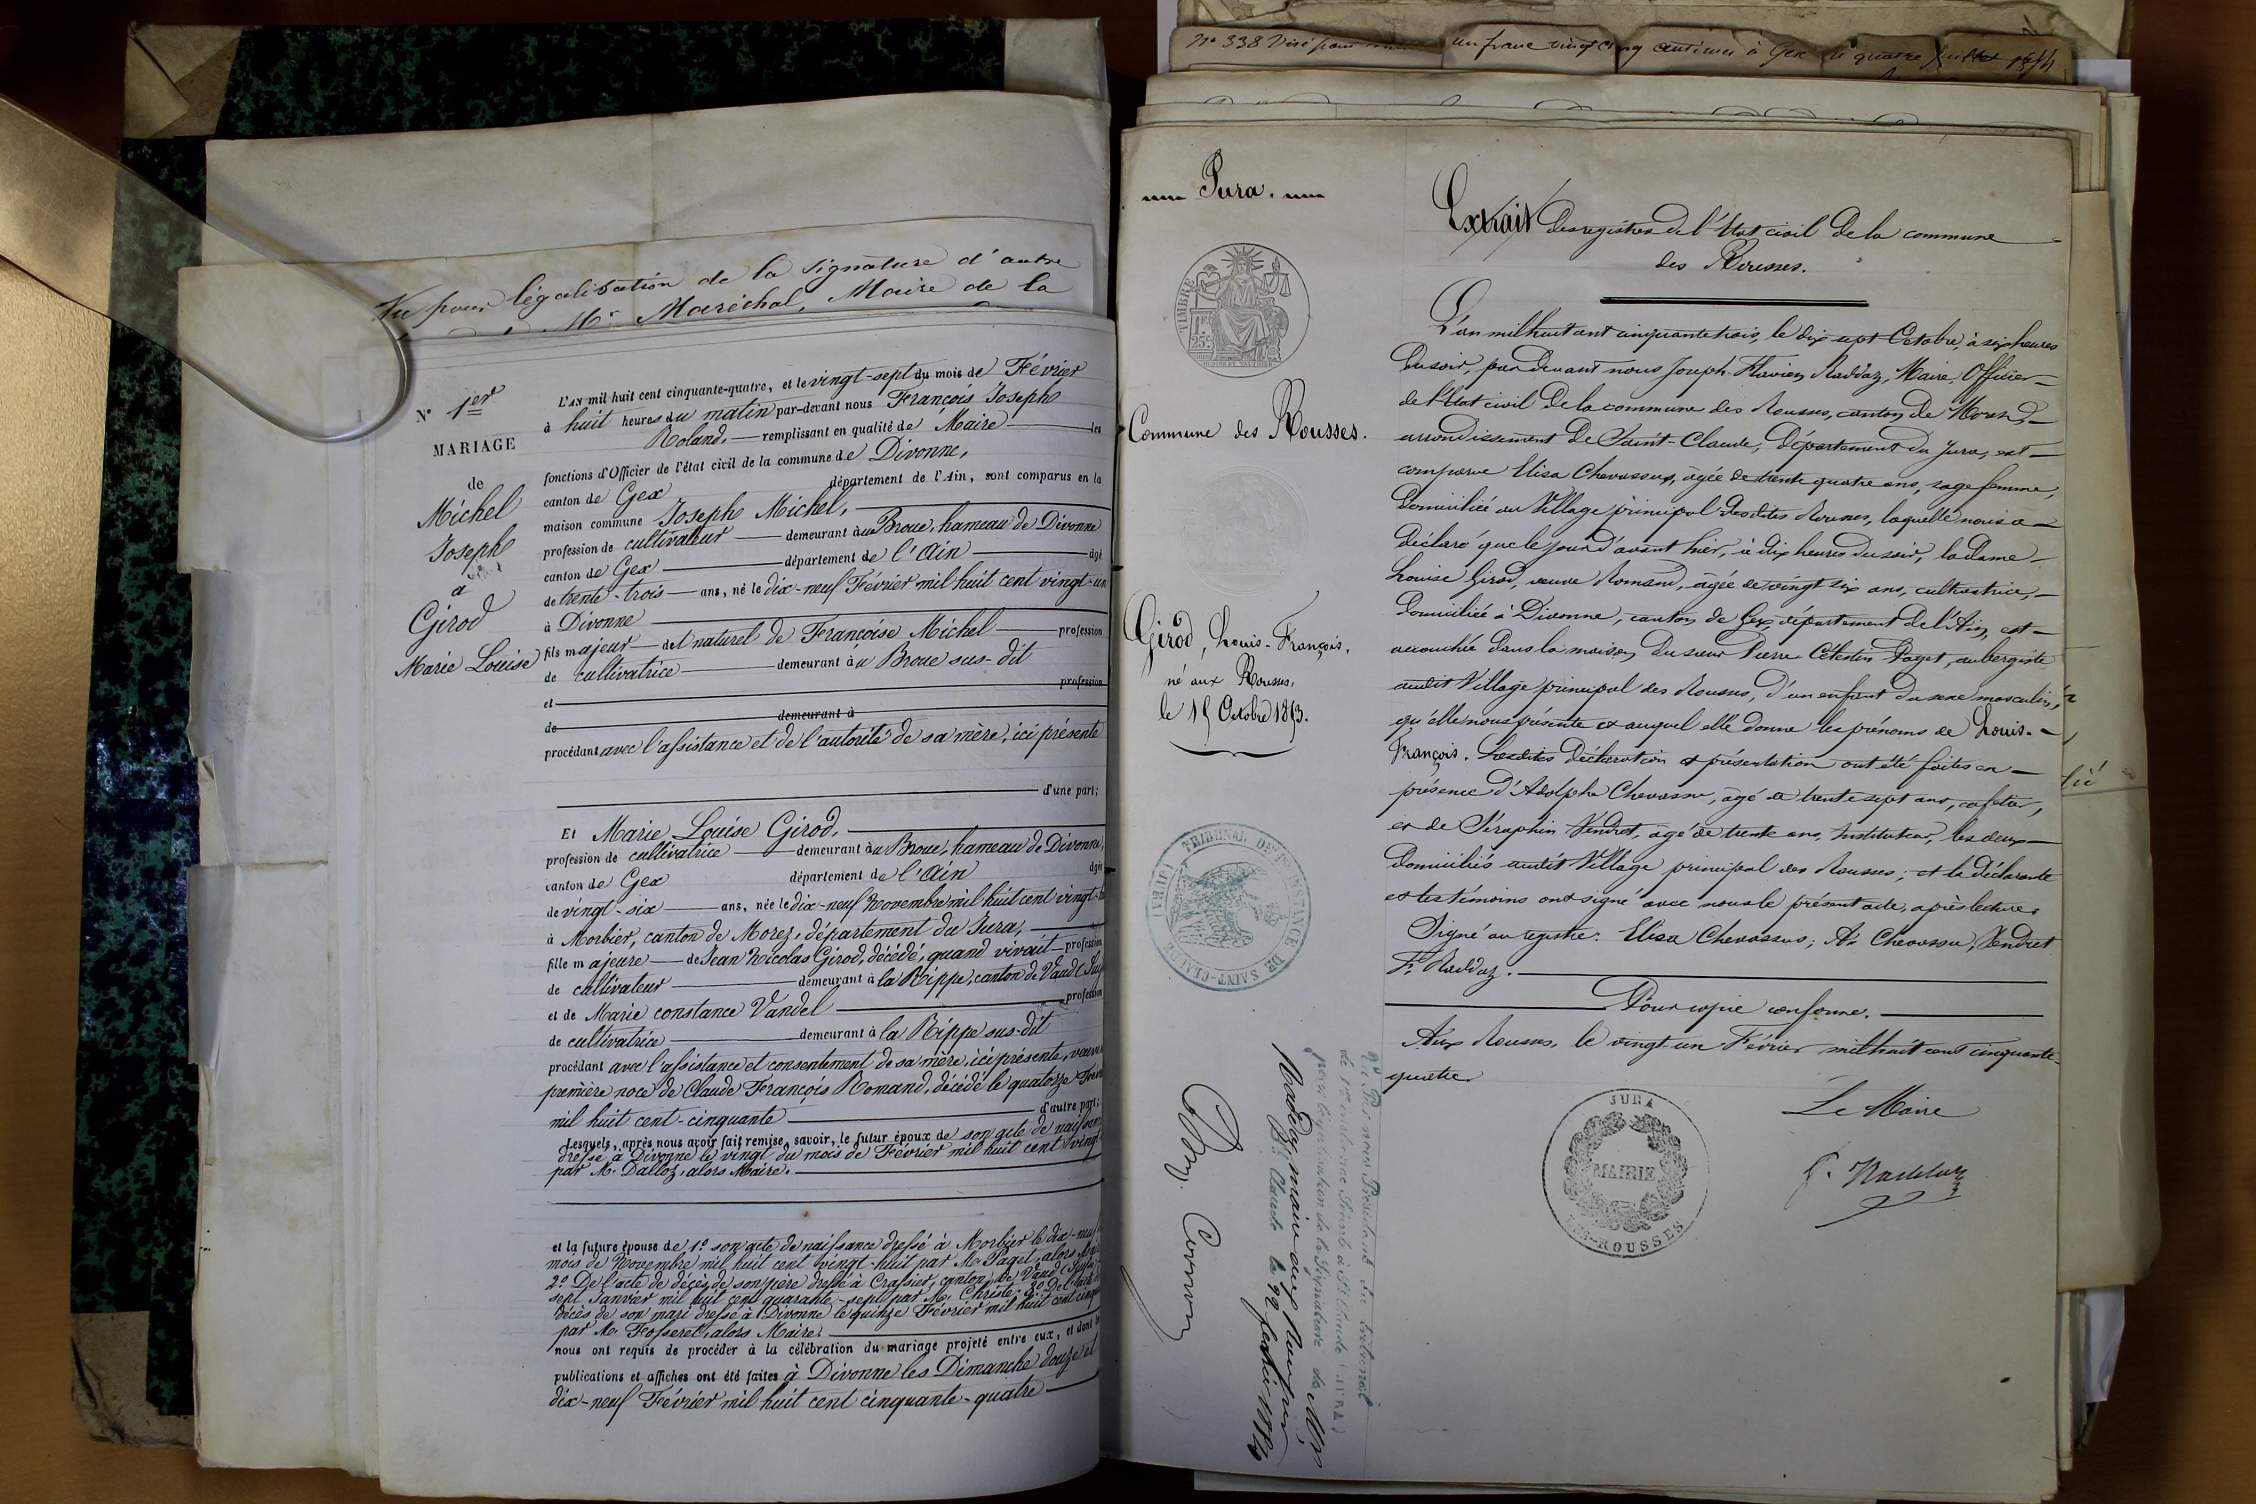 Vu pour légalisation de la signature d'autre
Mr Maréchal, Maire de la
N° 1er
MARIAGE
de
Michel
Joseph
a
Girod
Marie Louise
L'AN mil huit cent cinquante-quatre, et le vingt-sept du mois de Février
à huit heures du matin par-devant nous François Joseph
Roland, remplissant en qualité de Maire les
fonctions d'Officier de l'état civil de la commune de Divonne,
canton de Gex département de l'Ain, sont comparus en la
maison commune Joseph Michel,
profession de cultivateur demeurant à au Broue, hameau de Divonne
canton de Gex département de l'Ain âgé
de trente-trois ans, né le dix-neuf Février mil huit cent vingt-un
à Divonne
fils majeur del naturel de Françoise Michel profession
de cultivatrice demeurant à u Broue sus-dit
et profession
de demeurant à
procédant avec l'assistance et de l'autorité de sa mère, ici présente
d'une part;
Et Marie Louise Girod,
profession de cultivatrice demeurant à u Broue, hameau de Divonne,
canton de Gex département de l'Ain âgée
de vingt-six ans, née le dix-neuf Novembre mil huit cent vingt-
à Morbier, canton de Morez, département du Jura,
fille majeure de Jean Nicolas Girod, décédé, quand vivait profession
de cultivateur demeurant à la Rippe, canton de Vaud (Sui
et de Marie constance Vandel profession
de cultivatrice demeurant à la Rippe sus-dit
procédant avec l'assistance et consentement de sa mère, ici présente, veuve
première noce de Claude François Romand, décédé le quatorze Fevr
mil huit cent-cinquante d'autre part;
Lesquels, après nous avoir fait remise, savoir, le futur époux de son acte de naissan
dressé à Divonne le vingt du mois de Février mil huit cent vingt
par M. Dalloz, alors Maire.
et la future épouse de 1° son acte de naissance dressé à Morbier le dix-neuf
mois de Novembre mil huit cent vingt-huit par M. Paget, alors Mai
2° De l'acte de décès de son père dressé à Crassier, canton de Vaud (Suisse)
sept Janvier mil huit cent quarante-sept par M. Christe; 3° De l'acte de
décès de son mari dressé à Divonne le quinze Février mil huit cent cinqu
par M. Fosseret, alors Maire.
nous ont requis de procéder à la célébration du mariage projeté entre eux, et dont les
publications et affiches ont été faites à Divonne les Dimanche douze et
dix-neuf Février mil huit cent cinquante-quatre
N° 338 Visé pour un franc vingt cinq centimes à Gex le quatre Juillet 1854
Jura.
TIMBRE
1F
25C
Commune des Rousses.
Girod, Louis-François,
né aux Rousses,
le 15 Octobre 1853.
TRIBUNAL DE 1RE INSTANCE DE SAINT-CLAUDE (JURA)
Vu Par nous Président du tribunal
de 1re instance séant à St Claude (JURA)
pour légalisation de la Signature de Mr
Raddaz, maire aux Rousses
St Claude le 22 février 1854
Extrait des registres de l'Etat civil de la commune
des Rousses.
L'an mil huit cent cinquante trois, le dix sept Octobre, à six heures
du soir, par devant nous Joseph-Flavien Raddaz, Maire, Officier
de l'Etat civil de la commune des Rousses, canton de Morez,
arrondissement de Saint-Claude, Département du Jura, est
comparue Elisa Chevassus, âgée de trente quatre ans, sage femme,
domiciliée au Village principal desdites Rousses, laquelle nous a
déclaré que le jour d'avant hier, à dix heures du soir, la dame
Louise Girod, veuve Romand, âgée de vingt six ans, cultivatrice,
domiciliée à Divonne, canton de Gex, département de l'Ain, est
accouchée dans la maison du sieur Pierre Célestin Paget, aubergiste
audit Village principal des Rousses, d'un enfant du sexe masculin,
qu'elle nous présente et auquel elle donne les prénoms de Louis-
François. Lesdites déclaration et présentation ont été faites en
présence d'Adolphe Chevassu, âgé de trente sept ans, cafetier,
et de Séraphin Vendret, âgé de trente ans, Instituteur, les deux
domiciliés audit Village principal des Rousses; et la déclarante
et les témoins ont signé avec nous le présent acte, après lecture.
Signé au registre: Elisa Chevassus; Ae Chevassu, Vendret
F. Raddaz.
Pour copie conforme.
Aux Rousses, le vingt-un Février mil huit cent cinquante
quatre
Le Maire
JURA
MAIRIE
LES-ROUSSES